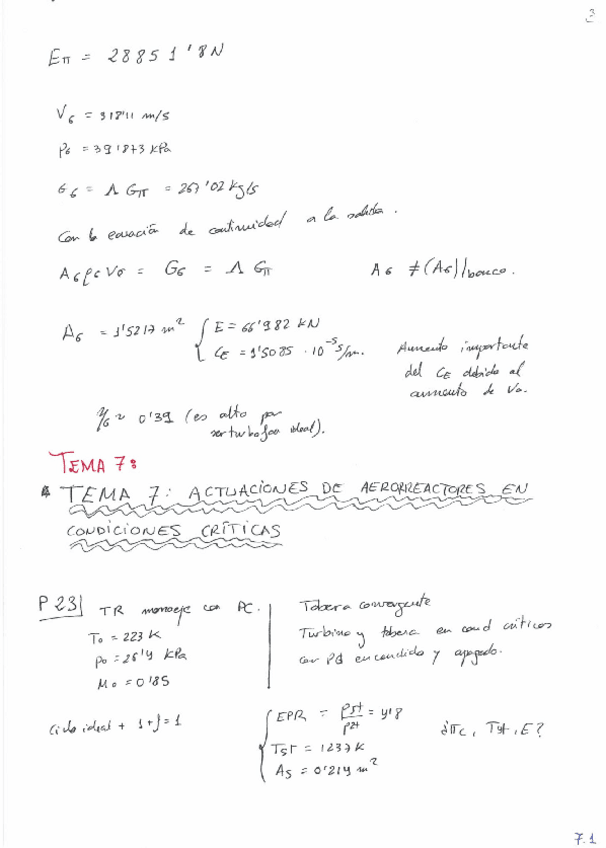 3
Eπ = 28851'8N
V6 = 318'11 m/s
P6 = 39'873 kPa
G6 = Λ Gπ = 267'02 kg/s
Con la ecuación de continuidad a la salida.
A6 ρc V6 = G6 = Λ Gπ A6 ≠ (A6)|banco.
A6 = 1'5217 m² { E = 66'982 kN
CE = 1'5085 · 10⁻⁵ s/m.
Aumento importante
del CE debido al
aumento de Vo.
0'39 (es alto por
ser turbofan ideal).
TEMA 7:
TEMA 7: ACTUACIONES DE AERORREACTORES EN
CONDICIONES CRÍTICAS
P 23| TR monoeje con PC.
T0 = 223 K
p0 = 26'4 kPa
M0 = 0'85
Tobera convergente
Turbina y tobera en cond críticas
con PQ encendido y apagado.
Ciclo ideal + 1+f=1
EPR = P5t/P2t = 4'8
T5t = 1237K
A5 = 0'214 m²
¿πc, T4t, E?
7.1